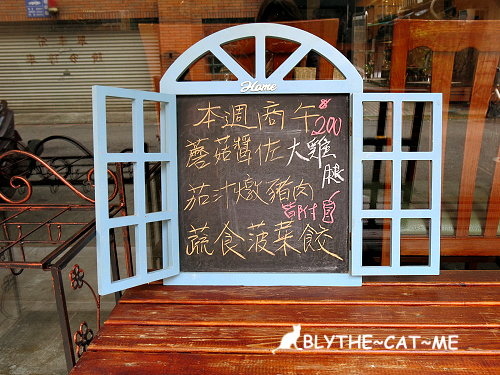 Home
本週商午 $200
蘑菇醬佐大雞腿
茄汁燉豬肉
蔬食菠菜餃
BLYTHE~CAT~ME